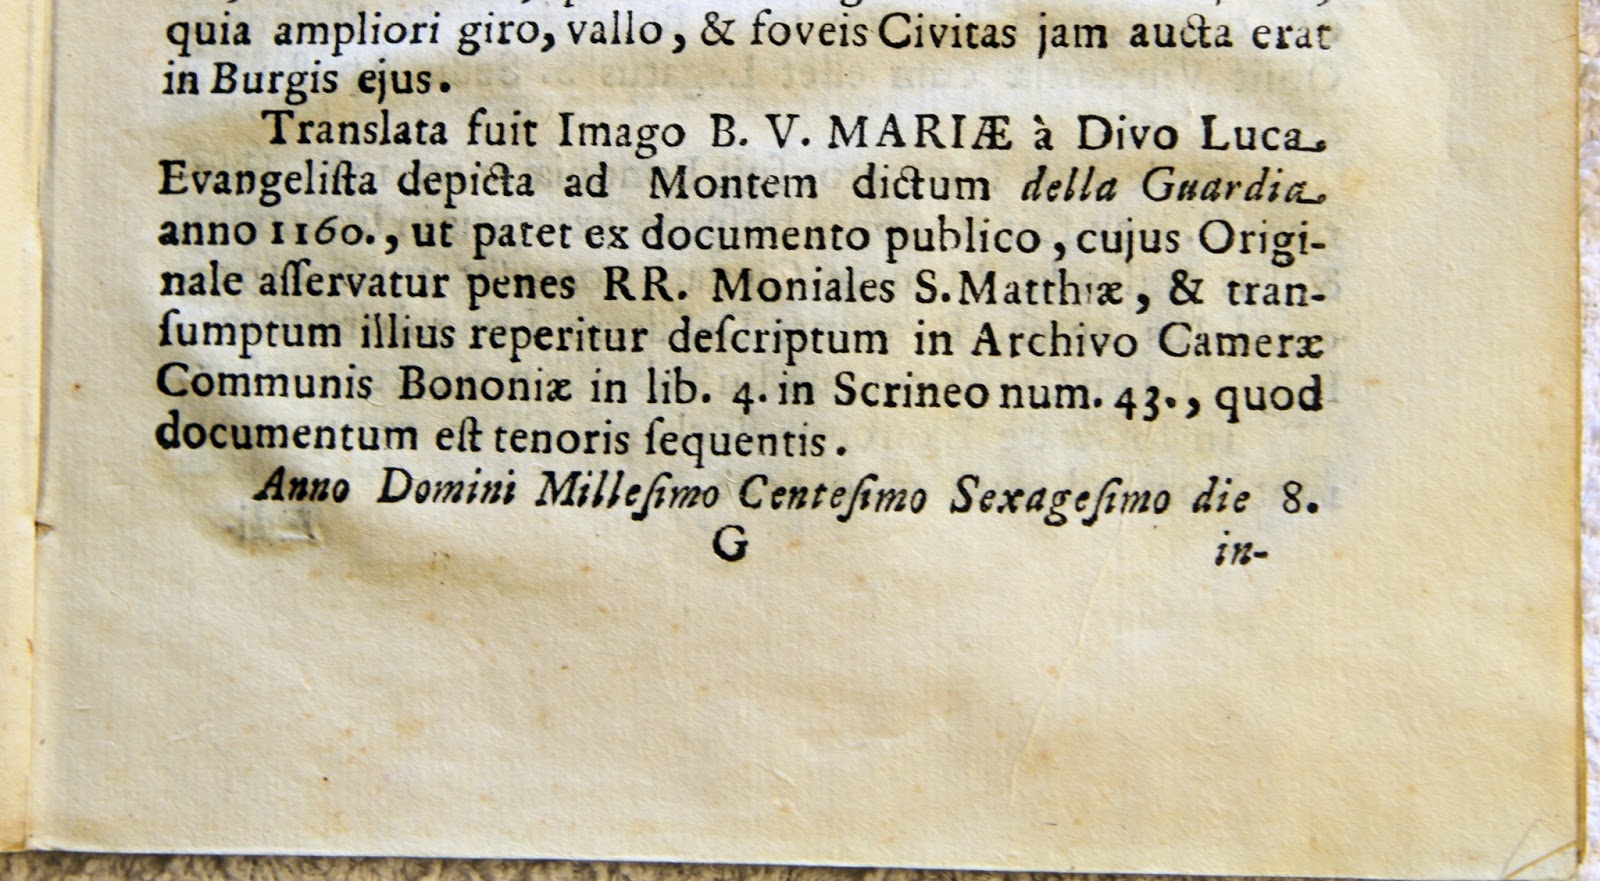 quia ampliori giro, vallo, & foveis Civitas jam aucta erat
in Burgis ejus.
Translata fuit Imago B. V. MARIÆ à Divo Luca
Evangeliſta depicta ad Montem dictum della Guardia
anno 1160., ut patet ex documento publico, cujus Origi-
nale aſſervatur penes RR. Moniales S. Matthiæ, & tran-
ſumptum illius reperitur deſcriptum in Archivo Cameræ
Communis Bononiæ in lib. 4. in Scrineo num. 43., quod
documentum eſt tenoris ſequentis.
Anno Domini Milleſimo Centeſimo Sexageſimo die 8.
G
in-